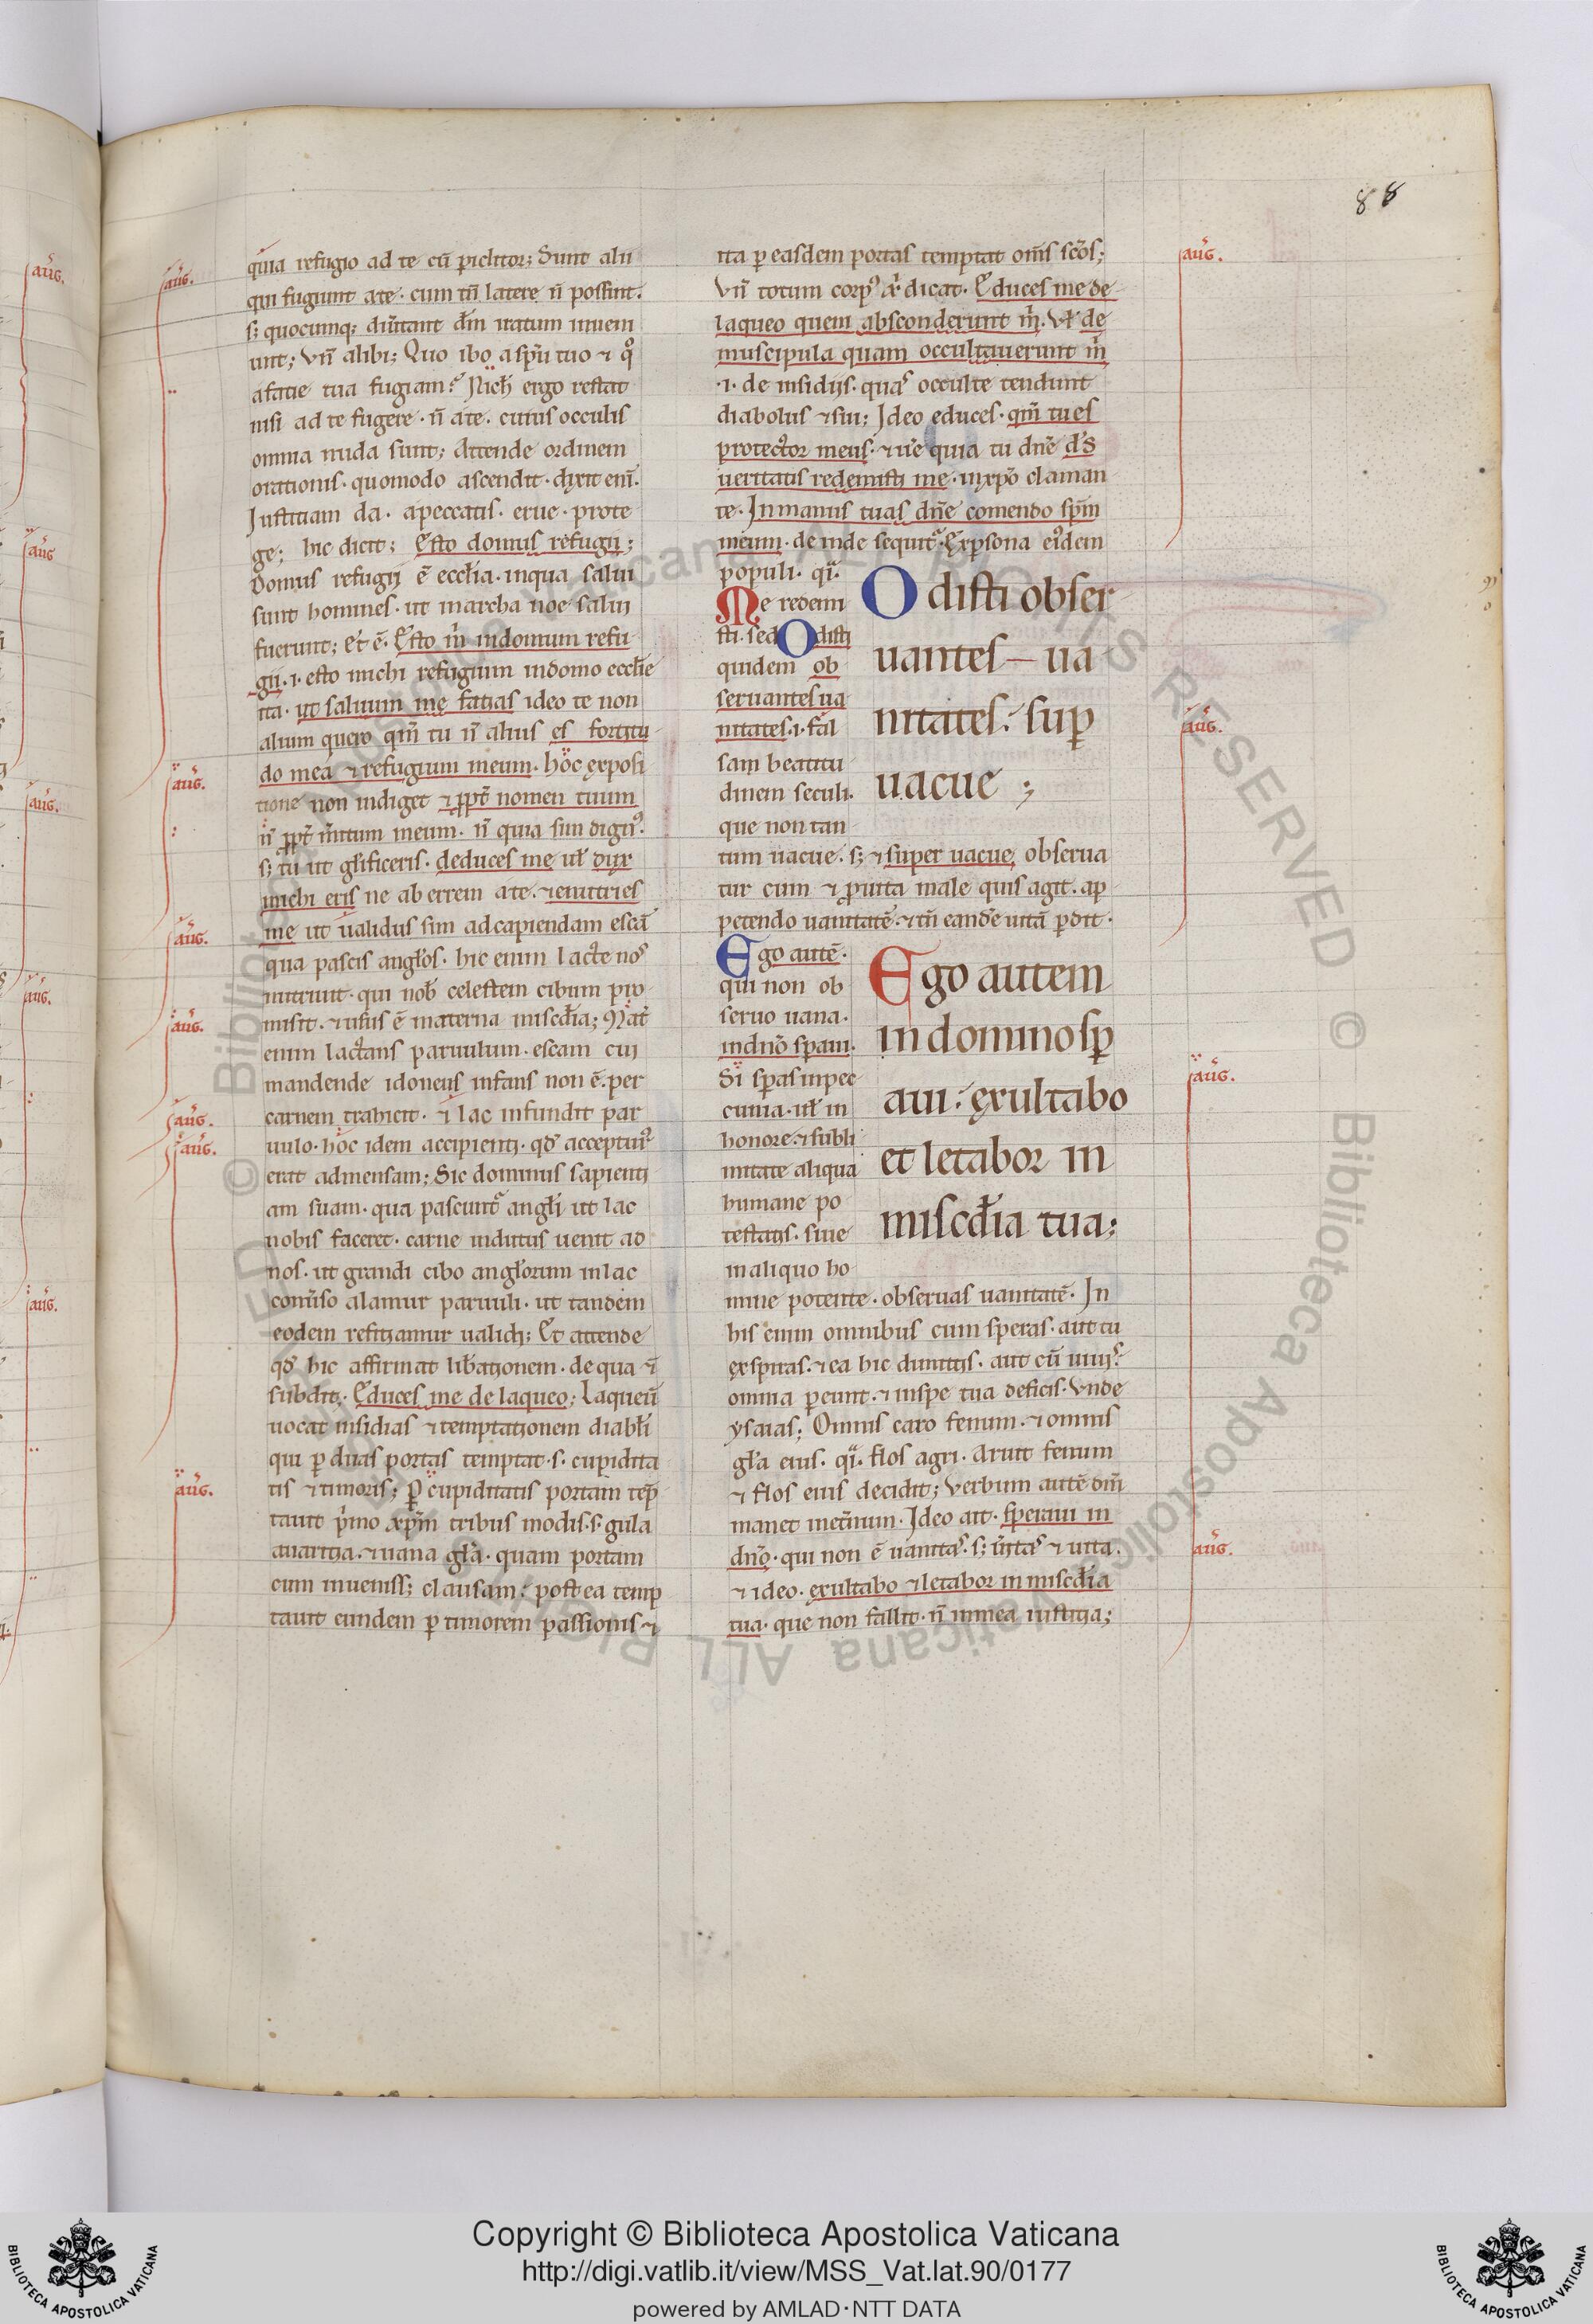 88
quia refugio ad te cū piclitor; Sunt alii
qui fugiunt a te · cum tn̄ latere n̄ possint.
s; quocumq; diūtant dm̄ iratum inueni
unt; Vn̄ alibi; Quo ibo a spū tuo ⁊ qͦ
a facie tua fugiam? Nich̄ ergo restat
nisi ad te fugere · n̄ a te. cuius occulis
omnia nuda sunt; Attende ordinem
orationis · quomodo ascendit · dixit eni᷒.
Iustitiam da · a peccatis · erue · prote
ge; hic dicit; Esto domus refugii;
Domus refugij ē eccl̄ia · in qua salui
sunt homines · ut in archa noe salui
fuerunt; Et ē. Esto m̄ in domum refu
gii · i · esto michi refugium in domo eccl̄ie
ita · ut saluum me facias ideo te non
alium quero qm̄ tu n̄ alius es fortitu
do mea ⁊ refugium meum · hoc exposi
tione non indiget ⁊ ꝓpt̄ nomen tuum
n̄ ꝓpt̄ m̄itum meum · n̄ quia sim dignꝰ.
s; tu ut gl̄ificeris · deduces me ul̄ dux
michi eris ne ab errem a te · ⁊ enutries
me ut ualidus sim ad capiendam escā
qua pascis angl̄os · hic enim lacte nos
nutriuit · qui nob̄ celestem cibum pro
misit · ⁊ usus ē materna misc̄dia; Mat̄
enim lactans paruulum · escam cui
mandende idoneus infans non ē · per
carnem trahicit · ⁊ lac infundit par
uulo · hoc idem accipienti · qd̄ accepturꝰ
erat ad mensam; Sic dominus sapienti
am suam · qua pascunt᷒ angl̄i ut lac
nobis faceret · carne indutus uenit ad
nos · ut grandi cibo angl̄orum in lac
conuso alamur paruuli · ut tandem
eodem reficiamur ualidi; Et attende
qd̄ hic affirmat lib̄ationem · de qua ⁊
subdit; Educes me de laqueo; Laqueū
uocat insidias ⁊ temptationem diabl̄i
qui ꝑ duas portas temptat · s · cupidita
tis ⁊ timoris; Ꝑ cupiditatis portam tēp
tauit p̄mo xp̄m tribus modis · s · gula
auaritia · ⁊ uana gl̄a · quam portam
cum inuenisss; clausam · post ea temp
tauit eundem ꝑ timorem passionis ⁊
ita ꝑ easdem portas temptat om̄s sc̄os;
Vn̄ totum corpꝰ x̄ dicat · Educes me de
laqueo quem absconderunt m̄ · Ul̄ de
muscipula quam occultauerunt m̄
· i · de insidijs · quas occulte tendunt
diabolus ⁊ sui; Ideo educes · qm̄ tu es
protector meus · ⁊ uē quia tu dn̄e d̄s
ueritatis redemisti me · in xp̄o claman
te · In manus tuas dn̄e comendo sp̄m
meum · deinde sequit᷒ · Ex ꝑsona eiꝰdem
populi · q̄i.
Me redemi
sti · sed Odisti
quidem ob
seruantes ua
nitates · i · fal
sam beatitu
dinem seculi.
que non tan
tum uacue · s; ⁊ super uacue obserua
tur cum ⁊ ꝓ uita male quis agit · ap
petendo uanitatē · ⁊ tn̄ eandē uitā ꝑdit.
Odisti obser
uantes – ua
nitates · suꝑ
uacue;
Ego autē ·
qui non ob
seruo uana ·
in dn̄o sp̄aui.
Si speras in pec
cunia · ul̄ in
honore · ⁊ subli
mitate aliqua
humane po
testatis · siue
in aliquo ho
mine potente · obseruas uanitatē · In
his enim omnibus cum speras · aut tu
exspiras · ⁊ ea hic dimittis · aut cū uiuis
omnia ꝑeunt · ⁊ in spe tua deficis · Vnde
ysaias; Omnis caro fenum · ⁊ omnis
gl̄a eius · q̄i · flos agri · Aruit fenum
⁊ flos eius decidit; Verbum autē dn̄i
manet inet̄num · Ideo ait · speraui in
dn̄o · qui non ē uanitas · s; u̅itas ⁊ uita ·
⁊ ideo · exultabo ⁊ letabor in misc̄dia
tua · que non fallit · n̄ in mea iustitia;
Ego autem
in domino sꝑ
aui · exultabo
et letabor in
misc̄dia tua;
aug̅.
aug̅.
aug̅.
aug̅.
aug̅.
aug̅.
aug̅.
aug̅.
aug̅.
aug̅.
aug̅.
aug̅
aug̅.
aug̅.
aug̅.
© Biblioteca Apostolica Vaticana ALL RIGHTS RESERVED © Biblioteca Apostolica Vaticana ALL RIGHTS RESERVED
BIBLIOTECA APOSTOLICA VATICANA
Copyright © Biblioteca Apostolica Vaticana
http://digi.vatlib.it/view/MSS_Vat.lat.90/0177
powered by AMLAD·NTT DATA
BIBLIOTECA APOSTOLICA VATICANA